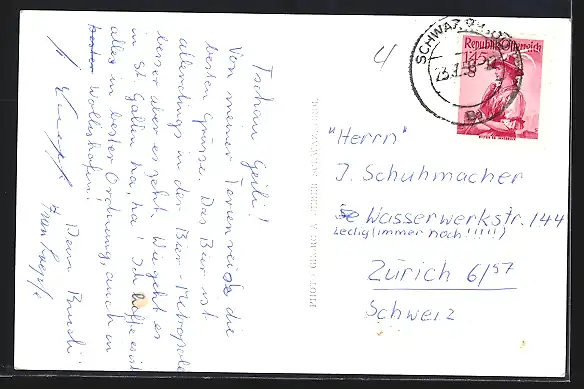 Tschau Geili!
Von meiner Ferienreise die
besten Grüsse. Das Bier ist
allerdings in der Bier-Metropole
besser aber es geht. Wie geht es
in St. Gallen ha, ha! Ich hoffe es ist
alles in bester Ordnung, auch in
Wollishofen!
Dein Bruch!
4
SCHWAZ
23.7.58
Republik Österreich
1.45
"Herrn"
J. Schuhmacher
Wasserwerkstr. 144
Ledig (immer noch!!!!!)
Zürich 6/57
Schweiz